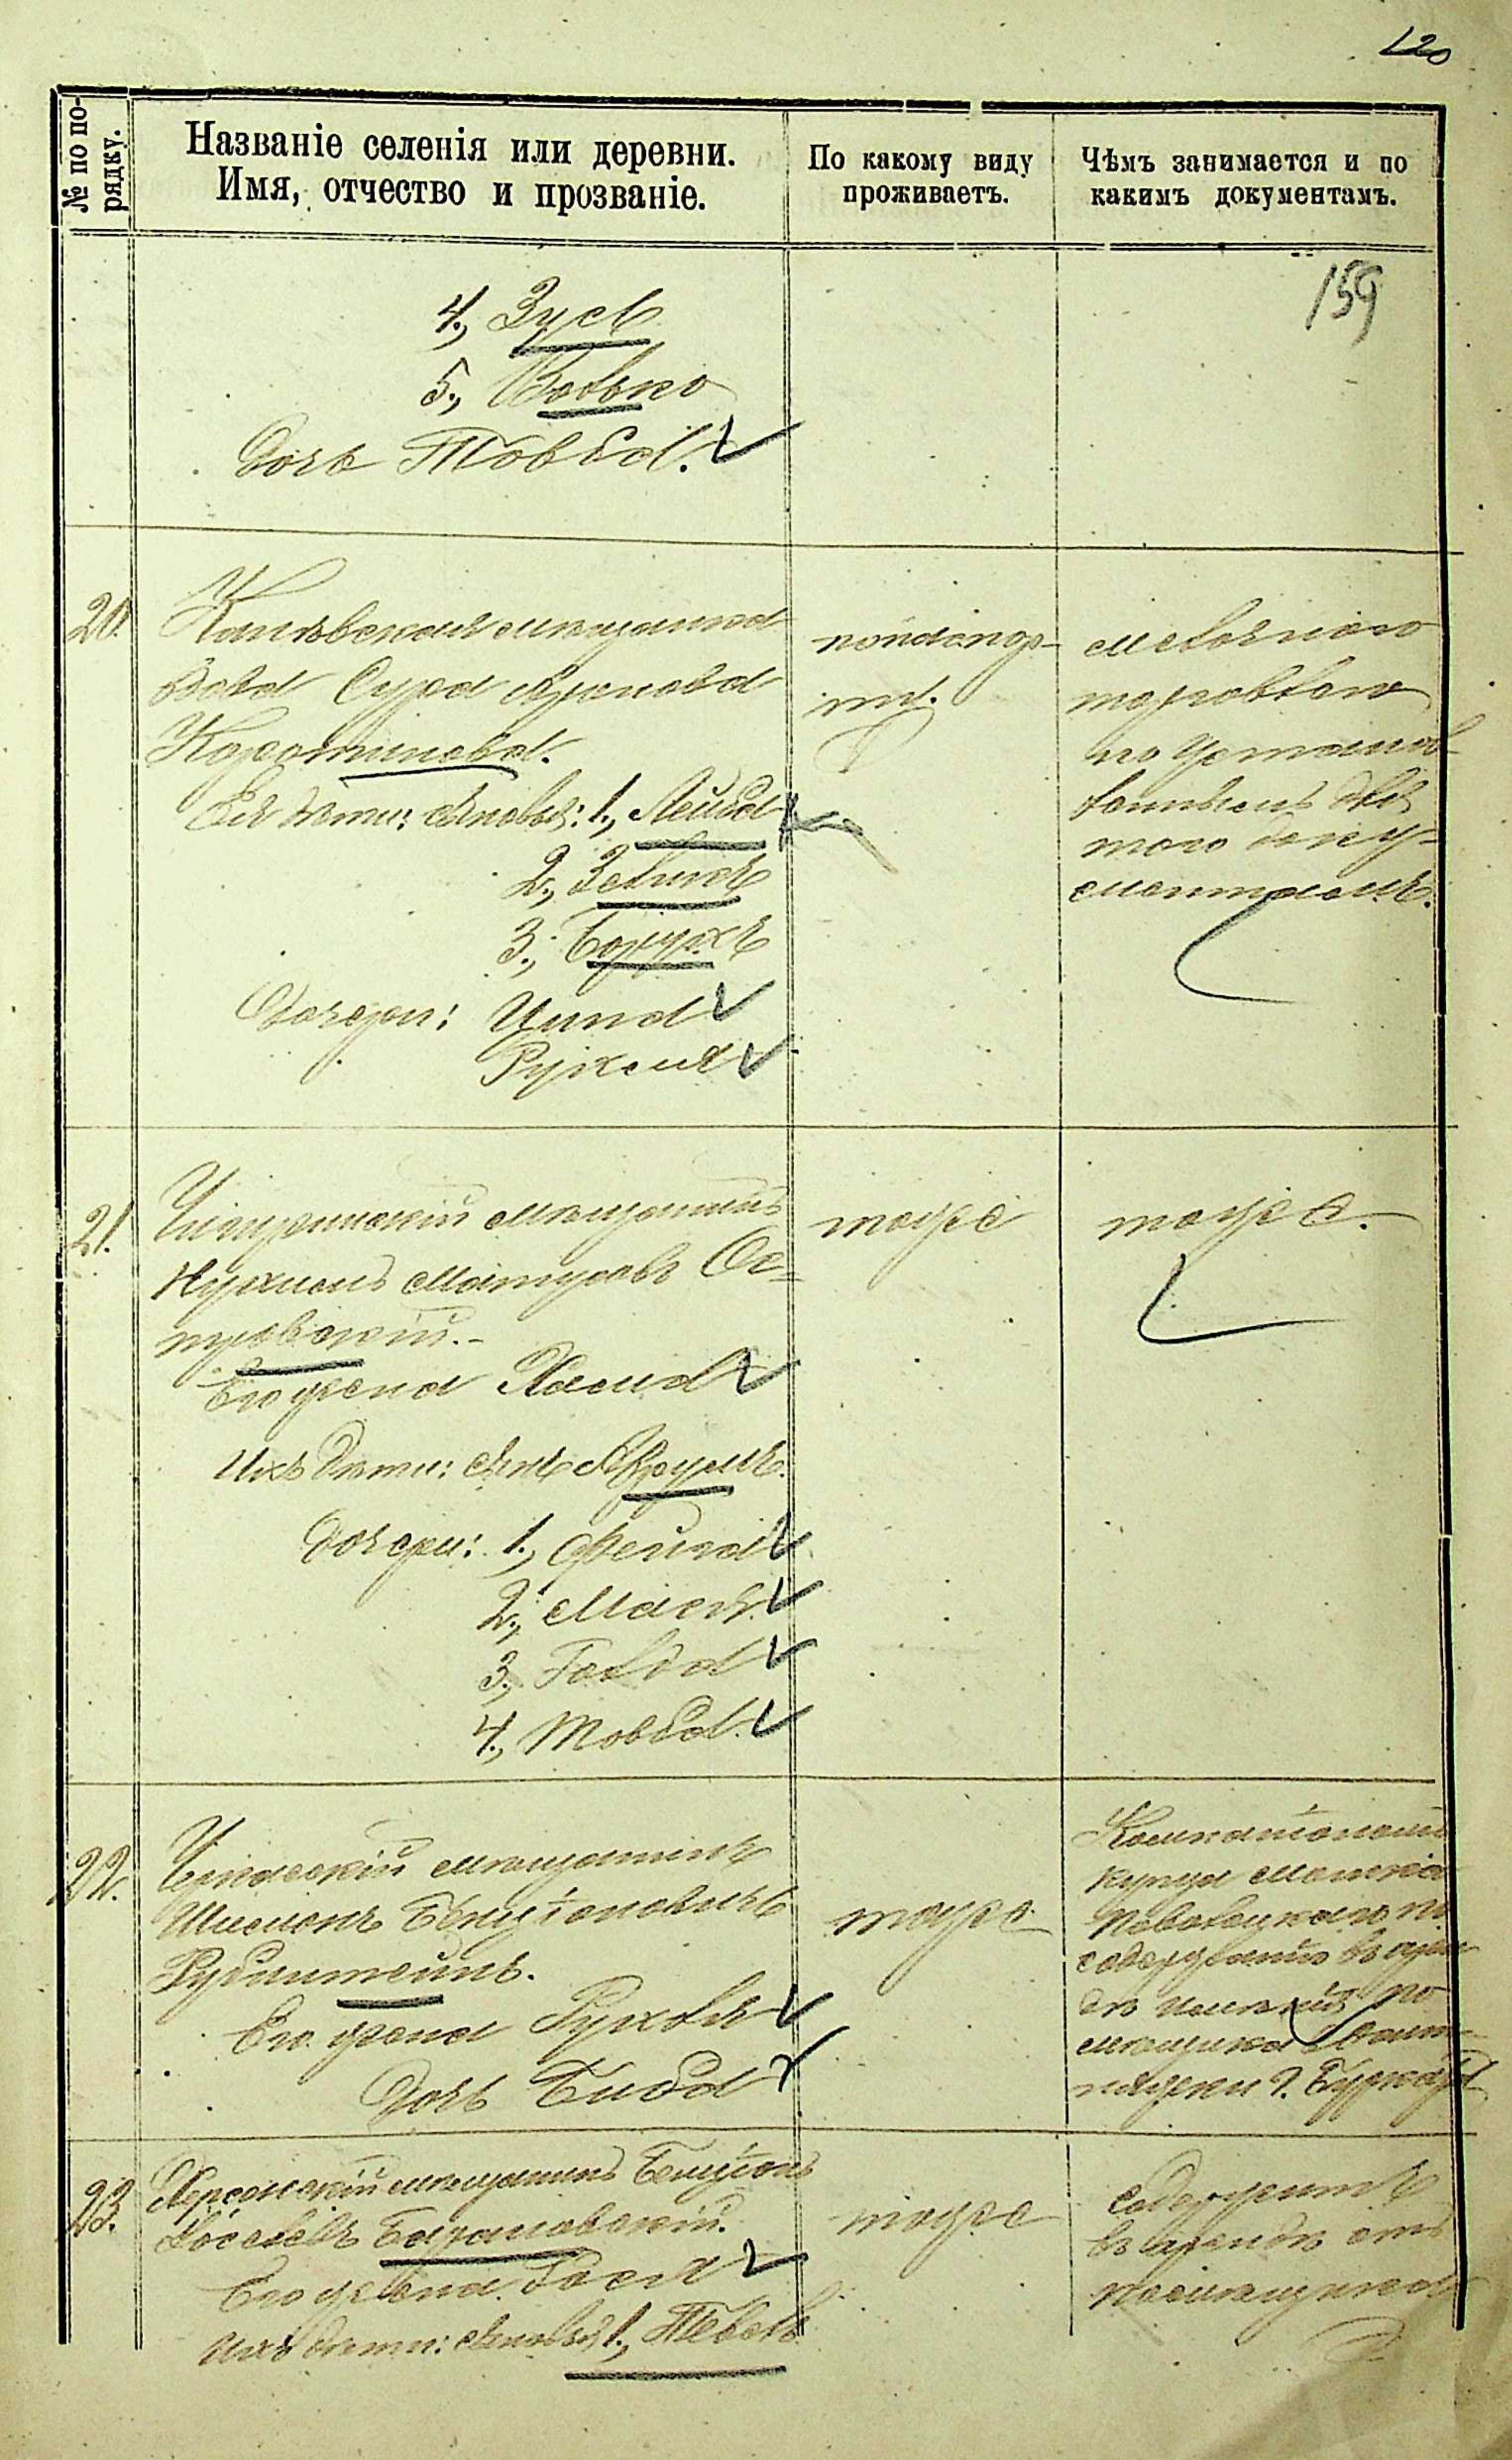 120
№ по по-
рядку.
Названіе селенія или деревни.
Имя, отчество и прозваніе.
По какому виду
проживаетъ.
Чѣмъ занимается и по
какимъ документамъ.
159
4., Зусь
5., Волько
Дочь Товба.
20.
Каневская мѣщанка
вдова Сура
Коротинова.
Ея дѣти: сыновья: 1., Лейба
2., Зейликъ
3., Борухъ
Дочери: Ципа
Рухля
по паспор-
ту.
мелочною
торговлею
по установ-
леннымъ для
того доку-
ментамъ.
21.
Чигиринскій мѣщанинъ
Нухимъ Ос-
тровскій.-
Его жена Хасма
Ихъ дѣти: сынъ Аврумъ.
Дочери: 1., Фейга
2., Мася.
3., Голда
4., Товба.
тоже
тоже.
22.
Черкаскій мѣщанинъ
Шимонъ Беніяминовичъ
Рубинштейнъ.
Его жена Рухля
Дочь Биба
тоже
купца
содержанію въ арен-
дѣ имѣнія по-
мѣщика
23.
Херсонскій мѣщанинъ Беніаминъ
Іоселевъ Барановскій.
Его жена Рося
Ихъ дѣти: сыновья 1., Тевель
тоже
Содержитъ
въ арендѣ отъ
помѣщика